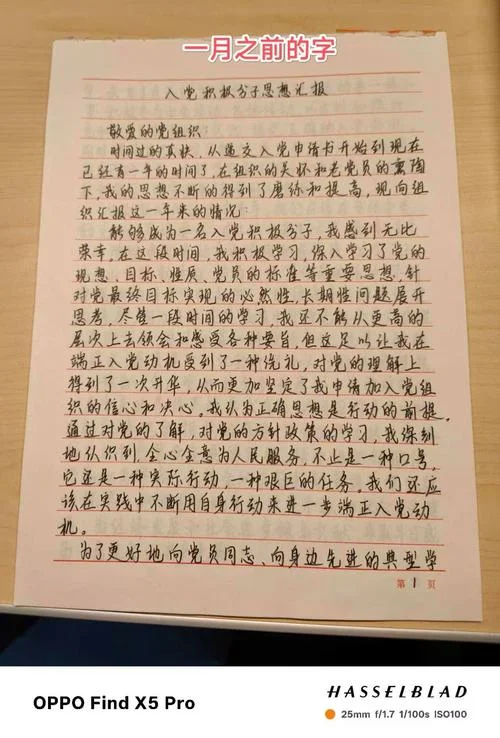 一月之前的字
入党积极分子思想汇报
敬爱的党组织：
时间过的真快，从递交入党申请书开始到现在
已经有一年的时间了，在组织的关怀和老党员的熏陶
下，我的思想不断的得到了磨练和提高，现向组
织汇报这一年来的情况：
能够成为一名入党积极分子，我感到无比
荣幸，在这段时间，我积极学习，深入学习了党的
观想、目标、性质、党员的标准等重要思想，针
对党最终目标实现的必然性，长期性问题展开
思考，尽管一段时间的学习，我还不能从更高的
层次上去领会和感受各种要旨，但这足以让我在
端正入党动机受到了一种洗礼，对党的理解上
得到了一次升华，从而更加坚定了我申请加入党组
织的信心和决心，我认为正确思想是行动的前提，
通过对党的了解，对党的方针政策的学习，我深刻
地认识到，全心全意为人民服务，不止是一种口号，
它还是一种实际行动，一种艰巨的任务，我们还应
该在实践中不断用自身行动来进一步端正入党动
机。
为了更好地向党员同志、向身边先进的典型学
第 1 页
OPPO Find X5 Pro
HASSELBLAD
25mm f/1.7 1/100s ISO100